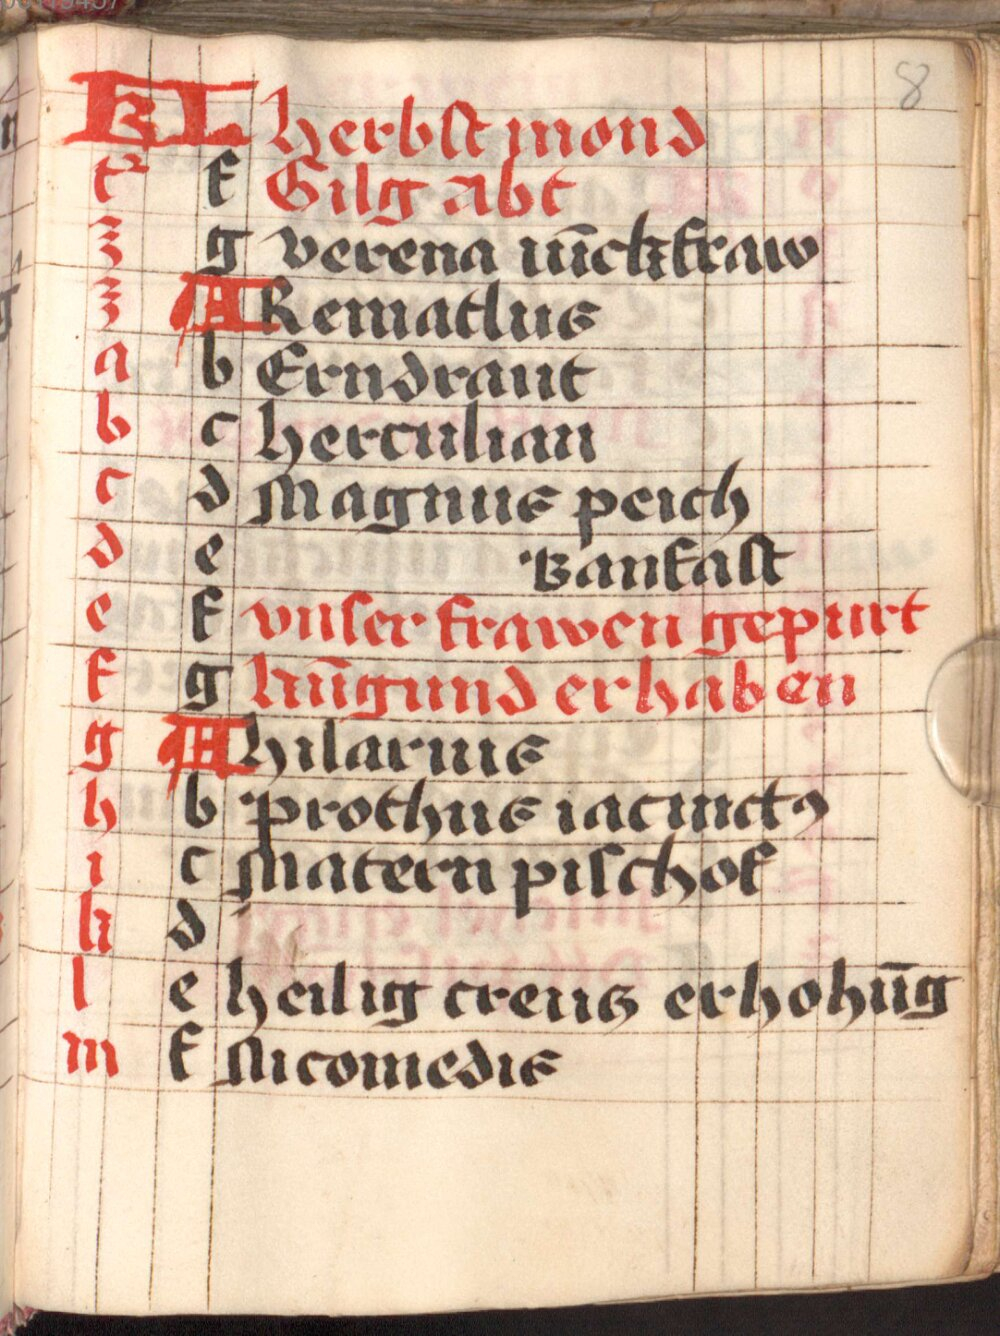 8
KL herbst mond
t f Gilg abt
z g verena iūckfraw
z A Remaclus
a b Erndraut
b c herculian
c d Magnus peich
d e Banfast
e f vnser frawen gepurt
f g kūgund erhaben
g A hilarius
h b prothus iacinctꝰ
i c Matern pischof
k d
l e heilig creus erhohūg
m f Nicomedis